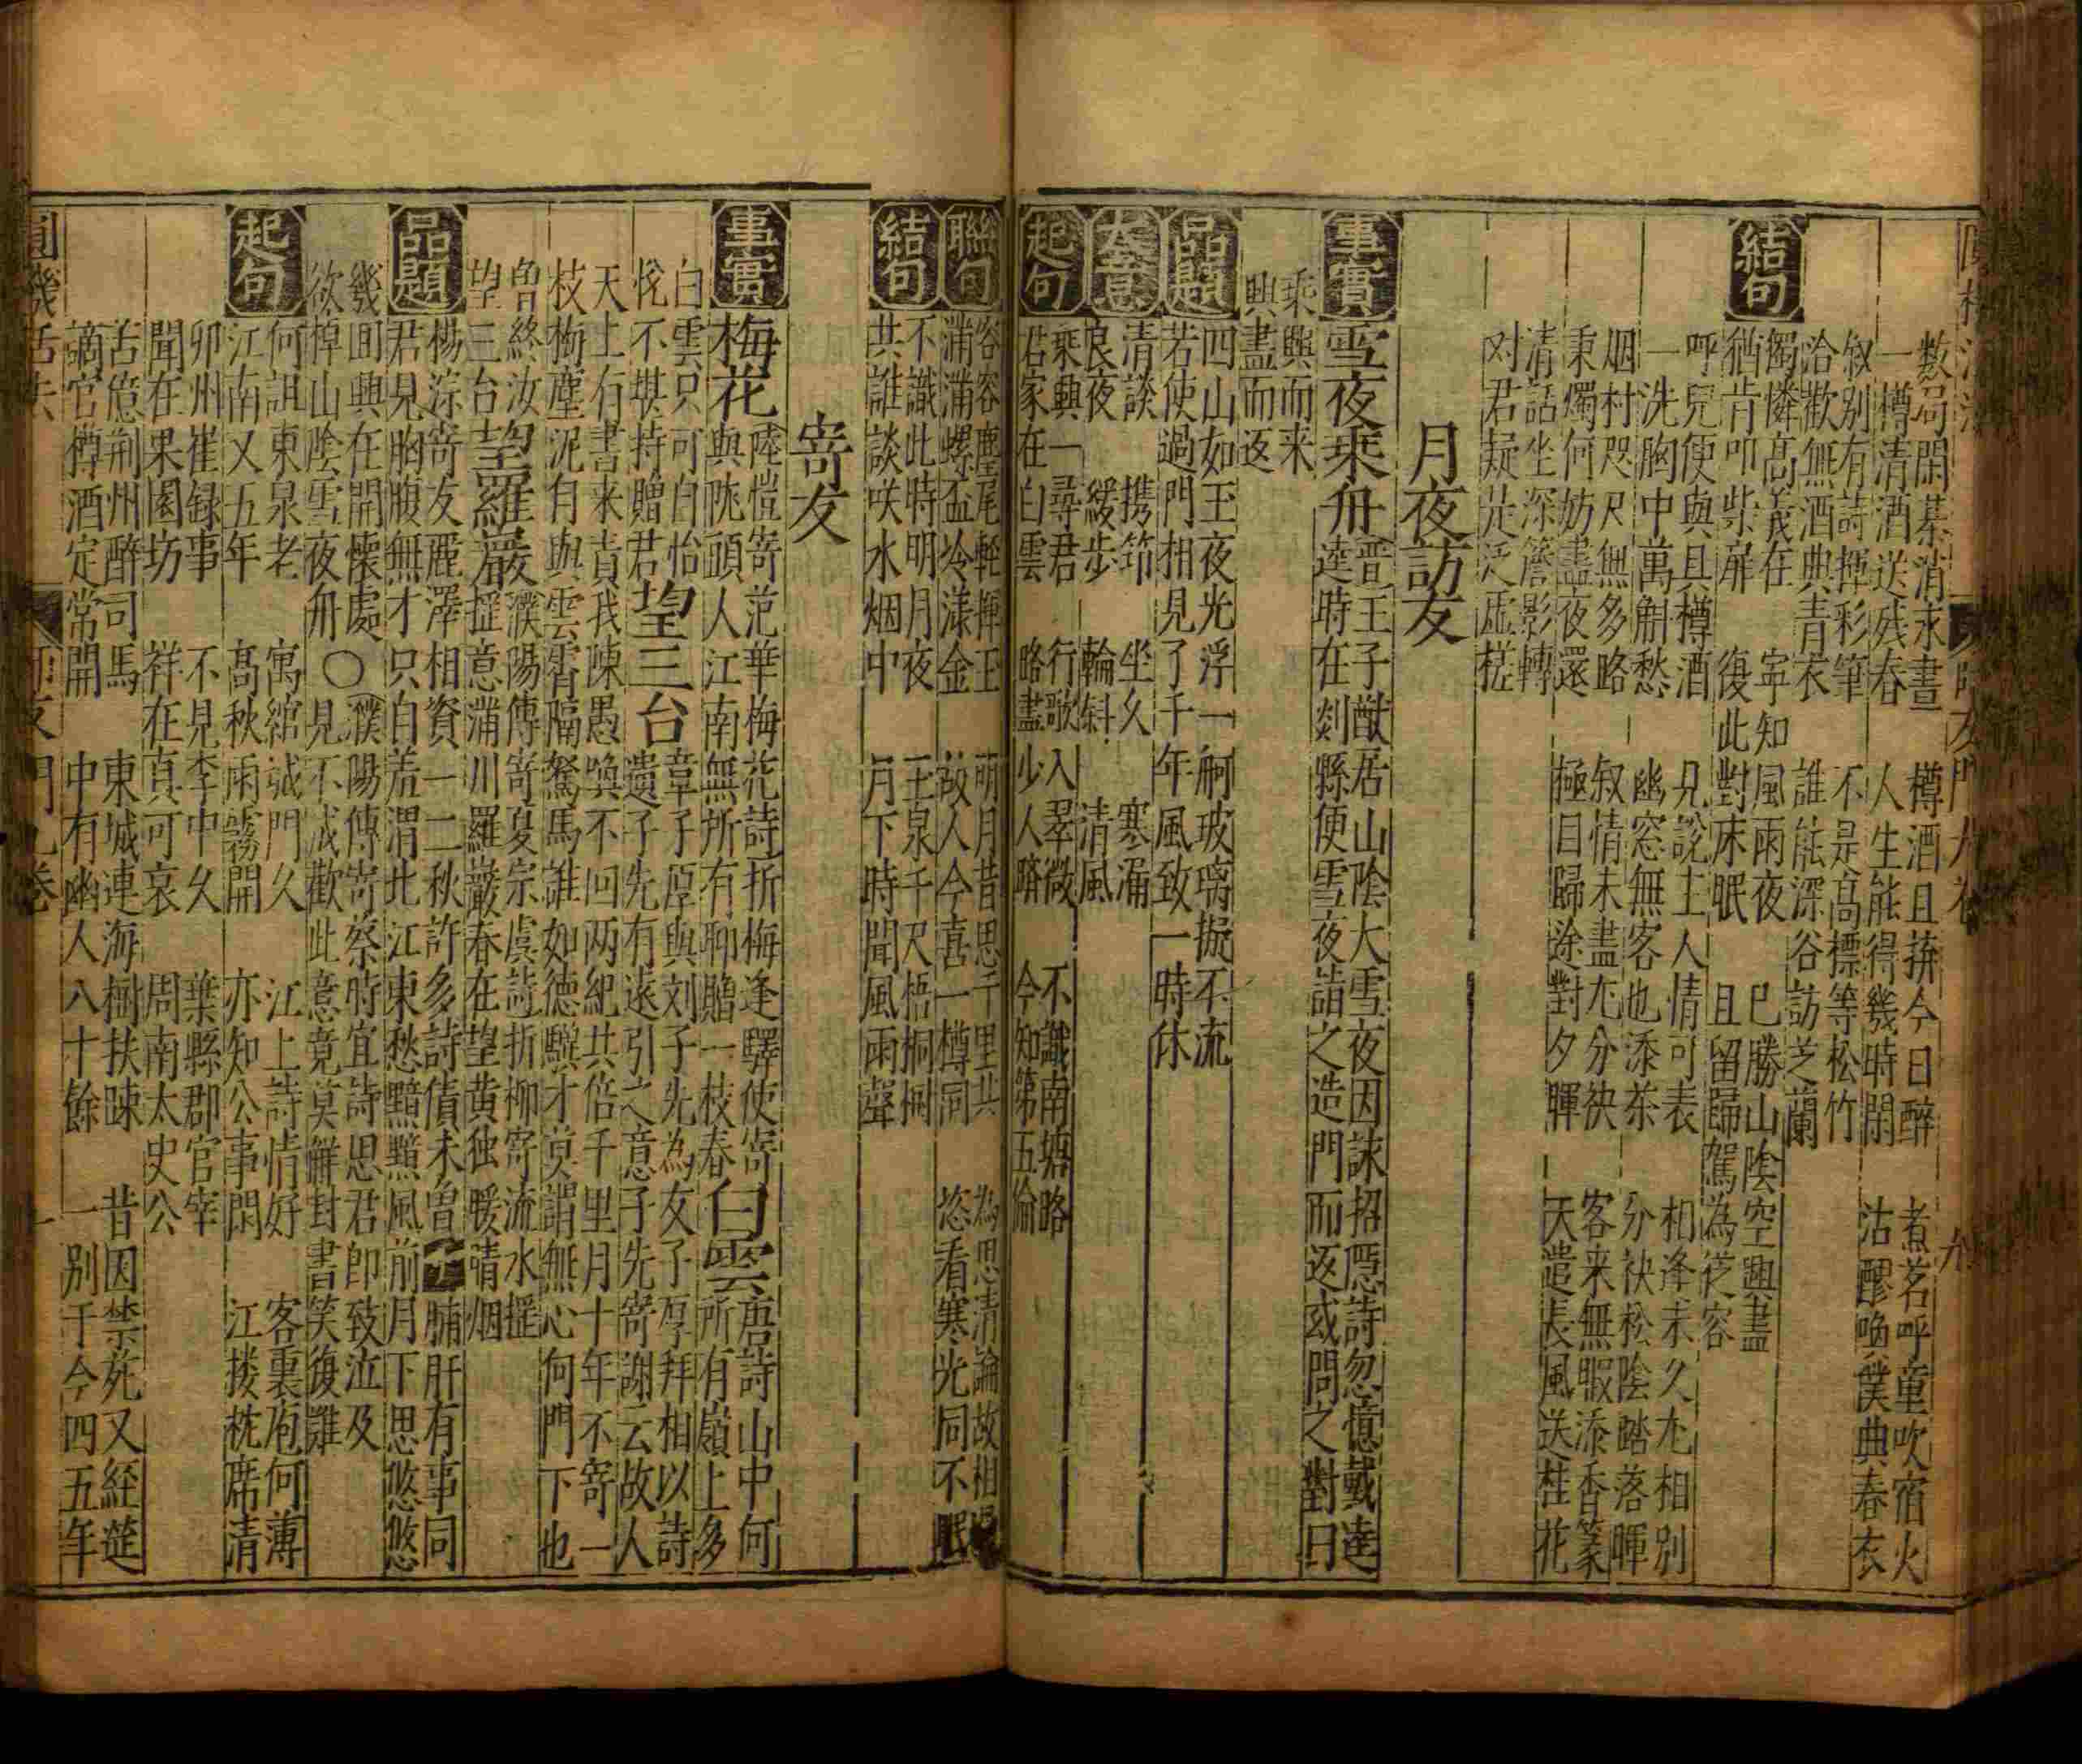 數局閑棊消永晝　樽酒且拚今日醉　煮茗呼童吹宿火
一樽清酒送残春　人生能得幾時閑　沽醪喚僕典春衣
叙别有詩揮彩筆　不是髙標等松竹
洽歡無酒典青衣　誰能深谷訪芝蘭
結句
髙義在　寜知風雨夜　已勝山陰空興盡
猶肯叩柴扉　復此對床眠　且留歸駕為從容
呼兒便與具樽酒　見說主人情可表　相逢未久尢相别
一洗胸中萬斛愁　幽窓無客也添茶　分袂松陰踏落暉
烟村咫尺無多路　叙情未盡尢分袂　客来無暇添香篆
秉燭何妨盡夜還　極目歸途對夕暉　天遣長風送桂花
清話坐深簷影轉
对君疑是泛虛槎
月夜訪友
事實
雪夜乗舟
晋王子猷居山陰大雪夜因詠招隠詩忽憶戴逵
逵時在剡縣便雪夜詣之造門而返或問之對曰
乘興而来
興盡而返
品題
四山如玉夜光浮一舸玻璃掜不流
若使過門相見了千年風致一時休
大意
清談　携笻　坐久　寒漏
良夜　緩步　輪斜　清風
起句
乗興一尋君　行歌入翠微　不識南塘路
君家在白雲　略盡少人躋　今知第五倫
聯句
容容麈尾輕揮玉　明月昔思千里共　為思清論故相
滿滿螺盃冷漾金　故人今喜一樽同　恣看寒光同不眠
結句
不識此時明月夜　玉泉千尺梧桐
共誰談咲水烟中　月下時聞風雨聲
寄友
事實
梅花
陸愷寄范華梅花詩折梅逢驛使寄
與隴頭人江南無所有聊贈一枝春
白雲
唐詩山中何
所有嶺上多
白雲只可自怡
悅不堪持贈君
望三台
章子厚與刘子先為友子厚拜相以詩
遺子先有遠引之意子先寄謝云故人
天上有書来責我踈愚喚不回两紀共倍千里月十年不寄一
枝梅塵泥自與雲霄隔駑馬誰如德驥才莫謂無心何門下也
曾終汝
望三台
望羅巖
濮陽傳寄夏宗虞詩折柳寄流水摇
摇意滿川羅巖春在望黄独暖晴烟
品題
楊淙寄友麗澤相資一二秋許多詩債未曽　脯肝有事同
君見胸腹無才只自羞渭北江東愁黯黯風前月下思悠悠
幾囬興在開懷處○濮陽傳寄蔡時宜詩思君即致泣及
欲棹山陰雪夜舟　見不成歡此意竟莫觧封書笑復難
起句
何詛東泉老　寓舘誠門久　江上詩情好　客裏庖何薄
江南又五年　髙秋雨霧開　亦知公事閑　江搂枕席清
卯州崔録事　不見李中久　葉縣郡官宰
聞在果園坊　祥在真可哀　周南太史公
苦憶荆州醉司馬　東城連海樹扶踈　昔因禁苑又経莚
謫官樽酒定常開　中有幽人八十餘　一别于今四五年